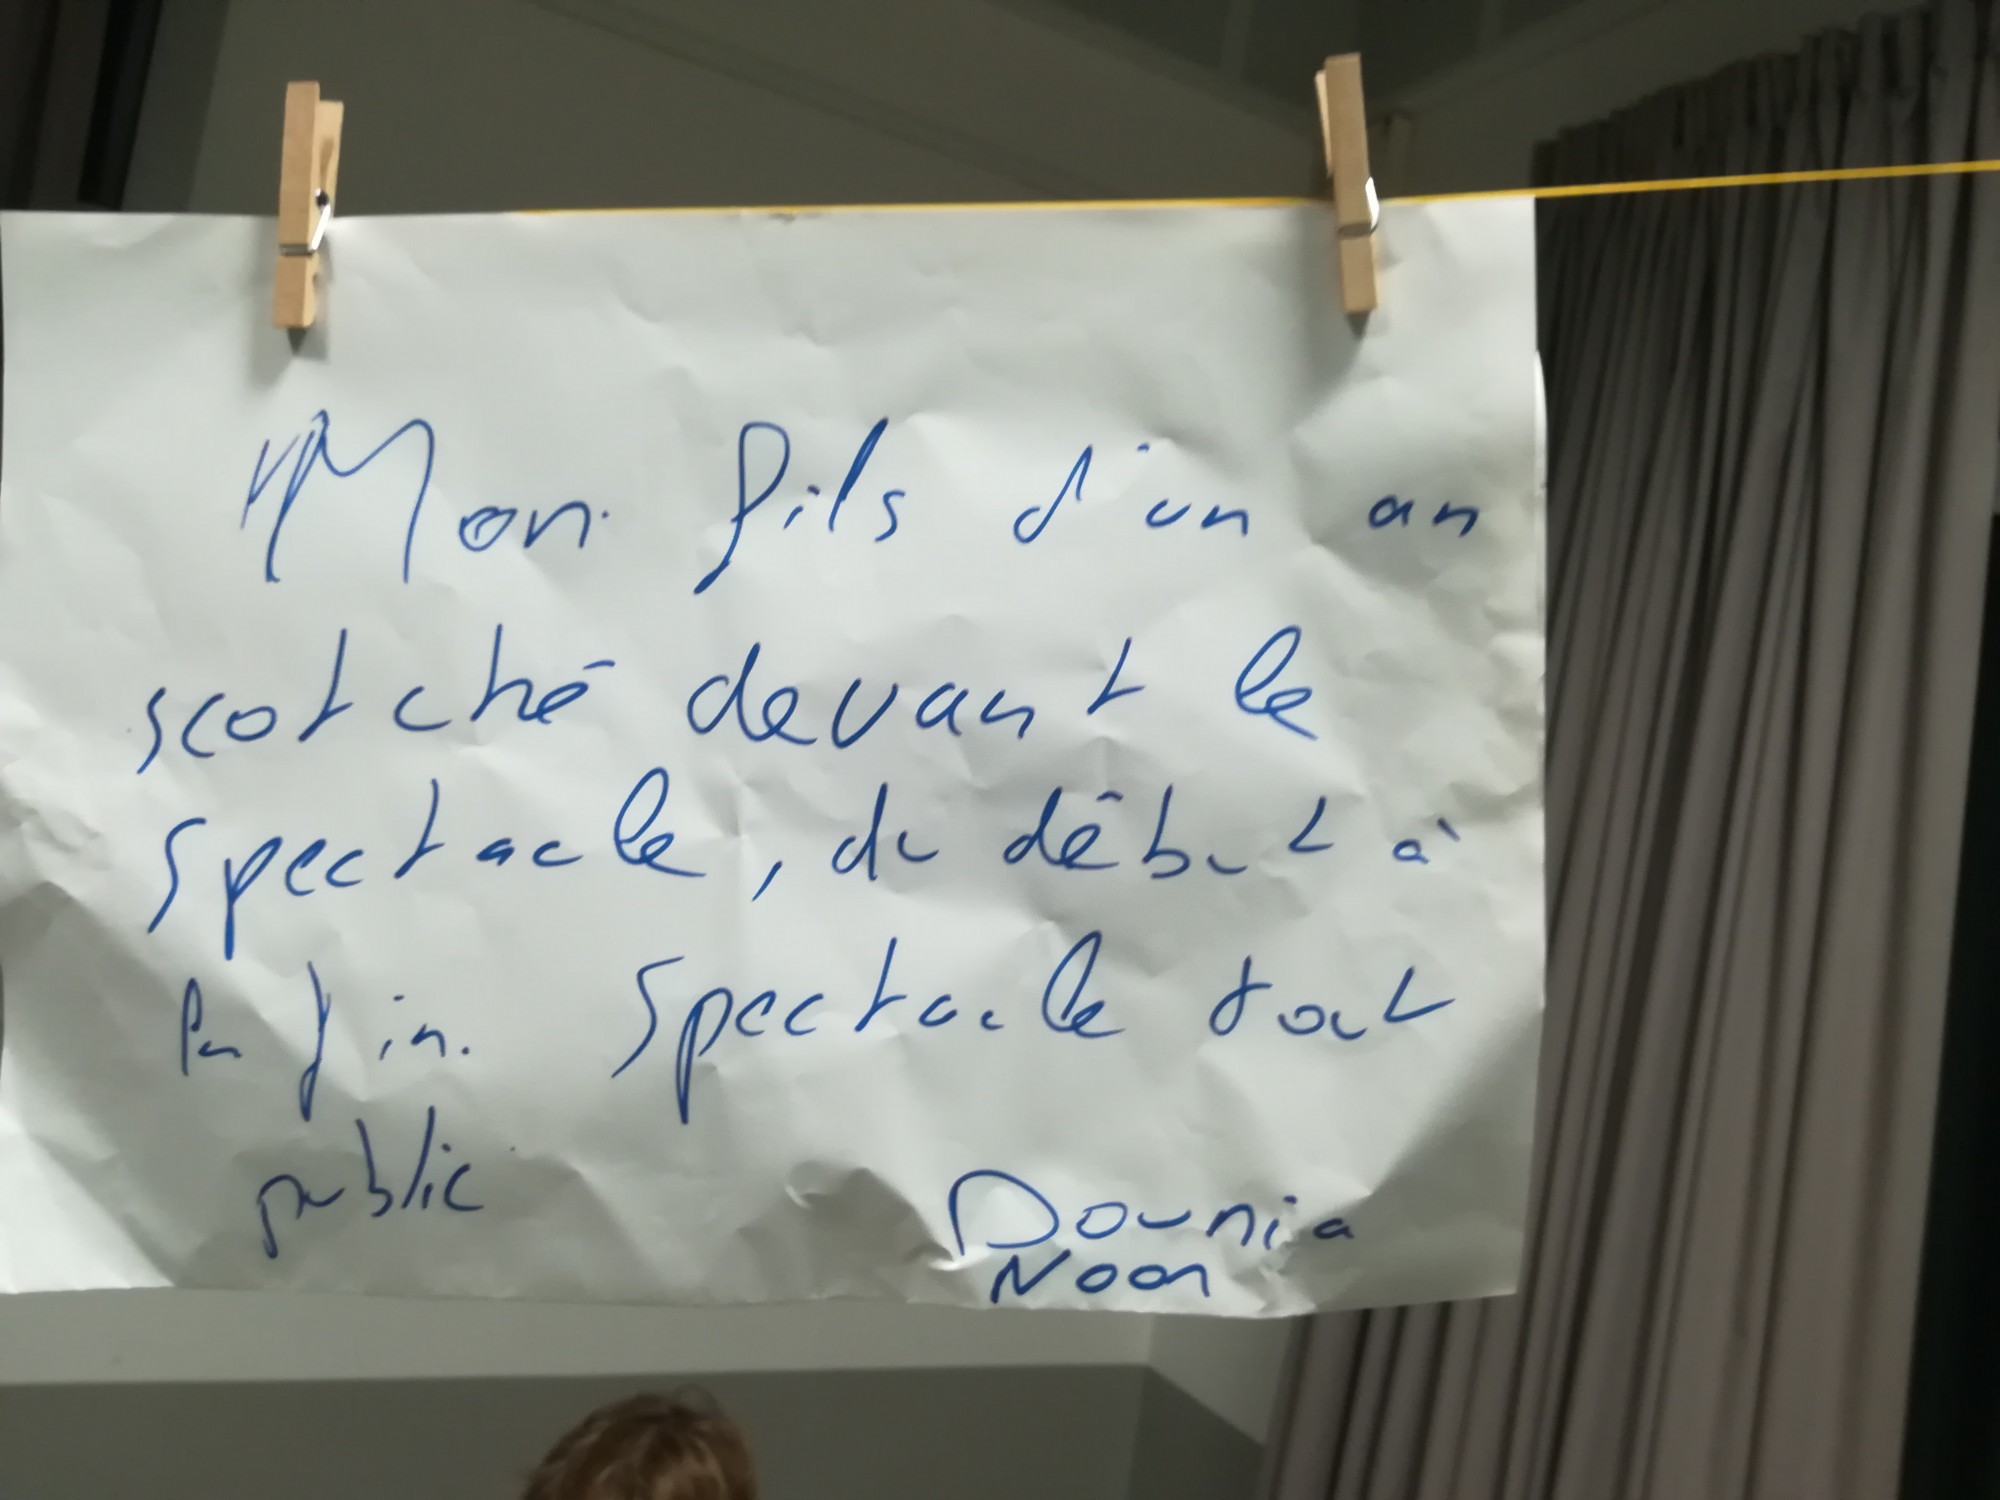 "Mon fils d'un an
scotché devant le
spectacle, du début à
la fin. Spectacle tout
public
Dounia
Noon